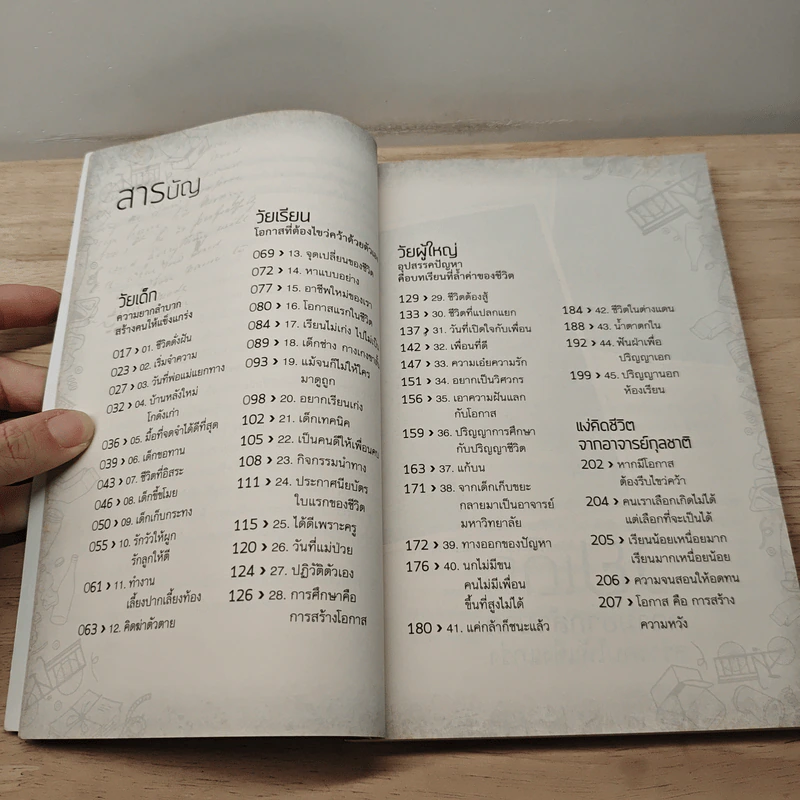 สารบัญ
วัยเด็ก
ความยากลำบาก
สร้างคนให้แข็งแกร่ง
017 › 01. ชีวิตดั่งฝัน
023 › 02. เริ่มจำความ
027 › 03. วันที่พ่อแม่แยกทาง
032 › 04. บ้านหลังใหม่
โกดังเก่า
036 › 05. มื้อที่จดจำได้ดีที่สุด
039 › 06. เด็กขอทาน
043 › 07. ชีวิตที่อิสระ
046 › 08. เด็กขี้ขโมย
050 › 09. เด็กเก็บกระทง
055 › 10. รักวัวให้ผูก
รักลูกให้ตี
061 › 11. ทำงาน
เลี้ยงปากเลี้ยงท้อง
063 › 12. คิดฆ่าตัวตาย
วัยเรียน
โอกาสที่ต้องไขว่คว้าด้วย
069 › 13. จุดเปลี่ยนของชีวิต
072 › 14. หาแบบอย่าง
077 › 15. อาชีพใหม่ของเรา
080 › 16. โอกาสแรกในชีวิต
084 › 17. เรียนไม่เก่ง
089 › 18. เด็กช่าง
093 › 19. แม้จนก็ไม่ให้ใคร
มาดูถูก
098 › 20. อยากเรียนเก่ง
102 › 21. เด็กเทคนิค
105 › 22. เป็นคนดีให้เพื่อนคบ
108 › 23. กิจกรรมนำทาง
111 › 24. ประกาศนียบัตร
ใบแรกของชีวิต
115 › 25. ได้ดีเพราะครู
120 › 26. วันที่แม่ป่วย
124 › 27. ปฏิวัติตัวเอง
126 › 28. การศึกษาคือ
การสร้างโอกาส
วัยผู้ใหญ่
อุปสรรคปัญหา
คือบทเรียนที่ล้ำค่าของชีวิต
129 › 29. ชีวิตต้องสู้
133 › 30. ชีวิตที่แปลกแยก
137 › 31. วันที่เปิดใจกับเพื่อน
142 › 32. เพื่อนที่ดี
147 › 33. ความเอ๋ยความรัก
151 › 34. อยากเป็นวิศวกร
156 › 35. เอาความฝันแลก
กับโอกาส
159 › 36. ปริญญาการศึกษา
กับปริญญาชีวิต
163 › 37. แก้บน
171 › 38. จากเด็กเก็บขยะ
กลายมาเป็นอาจารย์
มหาวิทยาลัย
172 › 39. ทางออกของปัญหา
176 › 40. นกไม่มีขน
คนไม่มีเพื่อน
ขึ้นที่สูงไม่ได้
180 › 41. แค่กล้าก็ชนะแล้ว
184 › 42. ชีวิตในต่างแดน
188 › 43. น้ำตาตกใน
192 › 44. ฟันฝ่าเพื่อ
ปริญญาเอก
199 › 45. ปริญญานอก
ห้องเรียน
แง่คิดชีวิต
จากอาจารย์กุลชาติ
202 › หากมีโอกาส
ต้องรีบไขว่คว้า
204 › คนเราเลือกเกิดไม่ได้
แต่เลือกที่จะเป็นได้
205 › เรียนน้อยเหนื่อยมาก
เรียนมากเหนื่อยน้อย
206 › ความจนสอนให้อดทน
207 › โอกาส คือ การสร้าง
ความหวัง